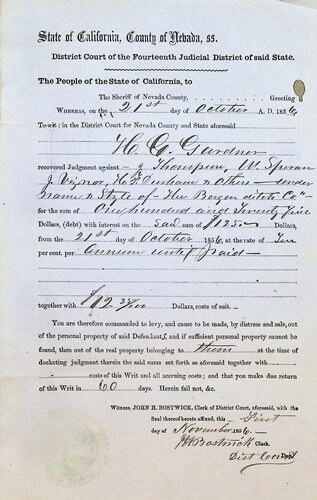 State of California, County of Nevada, ss.
District Court of the Fourteenth Judicial District of said State.
The People of the State of California, to
The Sheriff of Nevada County, Greeting
WHEREAS, on the 21st day of October A. D. 1856
To-wit: in the District Court for Nevada County and State aforesaid
H. G. Gardner
recovered Judgment against J Thompson, W.
J. H. F. Durham & others under
name & style of the ditch Co"
for the sum of One hundred and Twenty five
Dollars, (debt) with interest on the said sum of $125 Dollars,
from the 21st day of October 1856, at the rate of Ten
per cent. per Annum until paid
together with $12 Dollars, costs of suit.
You are therefore commanded to levy, and cause to be made, by distress and sale, out
of the personal property of said Defendants, and if sufficient personal property cannot be
found, then out of the real property belonging to them at the time of
docketing judgment therein the said sums set forth as aforesaid together with
costs of this Writ and all accruing costs; and that you make due return
of this Writ in 60 days. Herein fail not, &c.
Witness, JOHN H. BOSTWICK, Clerk of District Court, aforesaid, with the
Seal thereof hereto affixed, this First
day of November 1856.
JH Bostwick Clerk.
Dist Court